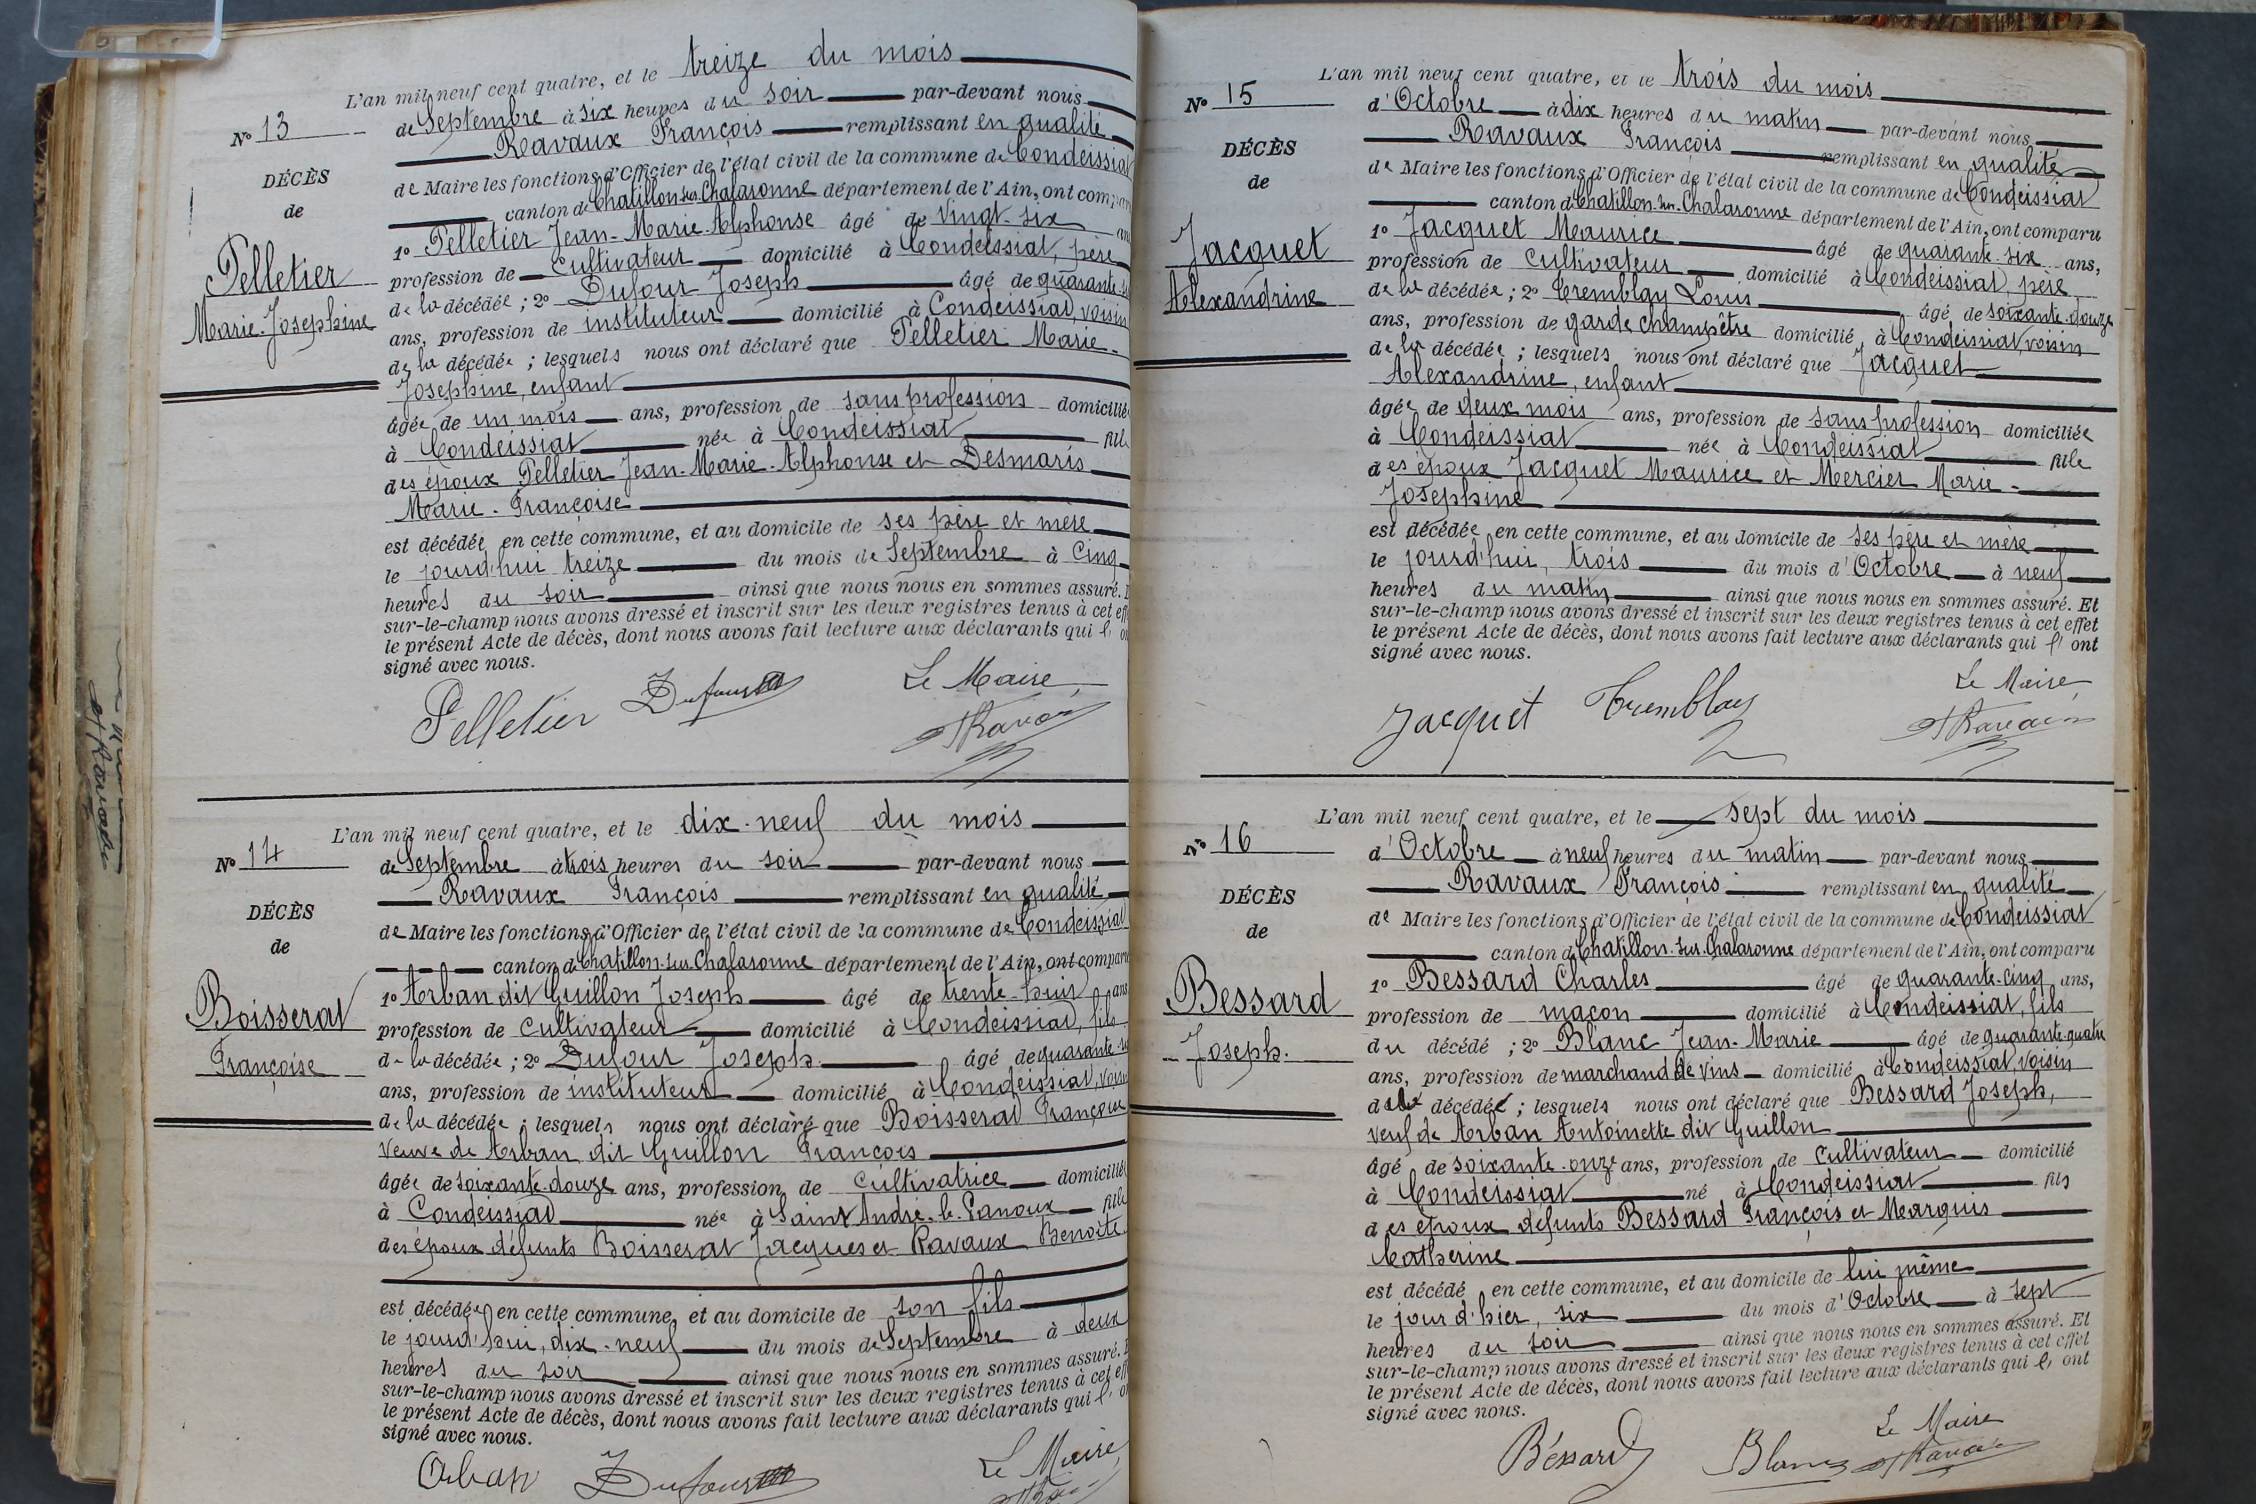 L'an mil neuf cent quatre, et le treize du mois
de Septembre à six heures du soir par-devant nous
Ravaux François remplissant en qualité
de Maire les fonctions d'Officier de l'état civil de la commune de Condeissiat
canton de Chatillon sur Chalaronne département de l'Ain, ont comparu
1º Pelletier Jean-Marie-Alphonse âgé de vingt-six ans
profession de cultivateur domicilié à Condeissiat, père
de la décédée ; 2º Dufour Joseph âgé de quarante
ans, profession de instituteur domicilié à Condeissiat, voisin
de la décédée ; lesquels nous ont déclaré que Pelletier Marie-
Josephine, enfant
âgée de un mois ans, profession de sans profession domiciliée
à Condeissiat née à Condeissiat fille
des époux Pelletier Jean-Marie-Alphonse et Desmaris
Marie-Françoise
est décédée en cette commune, et au domicile de ses père et mère
le jourd'hui treize du mois de Septembre à cinq
heures du soir ainsi que nous nous en sommes assuré.
sur-le-champ nous avons dressé et inscrit sur les deux registres tenus à cet eff
le présent Acte de décès, dont nous avons fait lecture aux déclarants qui l' on
signé avec nous.
Nº 13
DÉCÈS
de
Pelletier
Marie-Josephine
Pelletier Dufour Le Maire,
FRavaux
L'an mil neuf cent quatre, et le dix-neuf du mois
de Septembre à trois heures du soir par-devant nous
Ravaux François remplissant en qualité
de Maire les fonctions d'Officier de l'état civil de la commune de Condeissiat
canton de Chatillon-sur-Chalaronne département de l'Ain, ont comparu
1º Arban dit Guillon Joseph âgé de trente-huit ans
profession de cultivateur domicilié à Condeissiat, fils
de la décédée ; 2º Dufour Joseph âgé de quarante
ans, profession de instituteur domicilié à Condeissiat, voisin
de la décédée ; lesquels nous ont déclaré que Boisserat Françoise
veuve de Arban dit Guillon François
âgée de soixante-douze ans, profession de cultivatrice domiciliée
à Condeissiat née à Saint André-le-Panoux fille
des époux défunts Boisserat Jacques et Ravaux Benoite
est décédée en cette commune, et au domicile de son fils
le jourd'hui, dix-neuf du mois de Septembre à deux
heures du soir ainsi que nous nous en sommes assuré.
sur-le-champ nous avons dressé et inscrit sur les deux registres tenus à cet eff
le présent Acte de décès, dont nous avons fait lecture aux déclarants qui l' on
signé avec nous.
Nº 14
DÉCÈS
de
Boisserat
Françoise
Arban Dufour Le Maire,
L'an mil neuf cent quatre, et le trois du mois
d'Octobre à dix heures du matin par-devant nous
Ravaux François remplissant en qualité
de Maire les fonctions d'Officier de l'état civil de la commune de Condeissiat
canton de Chatillon-sur-Chalaronne département de l'Ain, ont comparu
1º Jacquet Maurice âgé de quarante-six ans,
profession de cultivateur domicilié à Condeissiat, père
de la décédée ; 2º Tremblay Louis âgé de soixante-douze
ans, profession de garde champêtre domicilié à Condeissiat, voisin
de la décédée ; lesquels nous ont déclaré que Jacquet
Alexandrine, enfant
âgée de deux mois ans, profession de sans profession domiciliée
à Condeissiat née à Condeissiat fille
des époux Jacquet Maurice et Mercier Marie-
Josephine
est décédée en cette commune, et au domicile de ses père et mère
le jourd'hui, trois du mois d'Octobre à neuf
heures du matin ainsi que nous nous en sommes assuré. Et
sur-le-champ nous avons dressé et inscrit sur les deux registres tenus à cet effet
le présent Acte de décès, dont nous avons fait lecture aux déclarants qui l' ont
signé avec nous.
Nº 15
DÉCÈS
de
Jacquet
Alexandrine
Jacquet Tremblay Le Maire,
FRavaux
L'an mil neuf cent quatre, et le sept du mois
d'Octobre à neuf heures du matin par-devant nous
Ravaux François remplissant en qualité
de Maire les fonctions d'Officier de l'état civil de la commune de Condeissiat
canton de Chatillon-sur-Chalaronne département de l'Ain, ont comparu
1º Bessard Charles âgé de quarante-cinq ans,
profession de maçon domicilié à Condeissiat, fils
du décédé ; 2º Blanc Jean-Marie âgé de quarante-quatre
ans, profession de marchand de vins domicilié à Condeissiat, voisin
du décédé ; lesquels nous ont déclaré que Bessard Joseph,
veuf de Arban Antoinette dit Guillon
âgé de soixante-onze ans, profession de cultivateur domicilié
à Condeissiat né à Condeissiat fils
des époux défunts Bessard François et Marquis
Catherine
est décédé en cette commune, et au domicile de lui même
le jour d'hier, six du mois d'Octobre à sept
heures du soir ainsi que nous nous en sommes assuré. Et
sur-le-champ nous avons dressé et inscrit sur les deux registres tenus à cet effet
le présent Acte de décès, dont nous avons fait lecture aux déclarants qui l' ont
signé avec nous.
Nº 16
DÉCÈS
de
Bessard
Joseph.
Béssard Blanc Le Maire
FRavaux